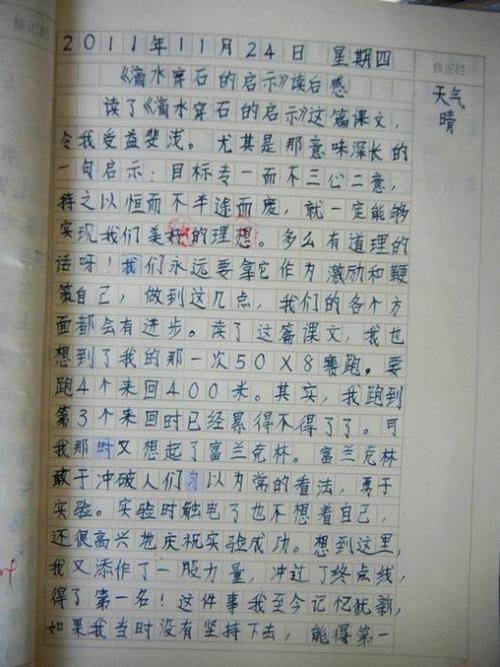 修正栏
修正栏
2011年11月24日 星期四
天气
晴
《滴水穿石的启示》读后感
读了《滴水穿石的启示》这篇课文，
令我受益斐浅。尤其是那意味深长的
一句启示：目标专一而不三心二意，
持之以恒而不半途而废，就一定能够
实现我们美好的理想。多么有道理的
话呀！我们永远要拿它作为激励和鞭
策自己，做到这几点，我们的各个方
面都会有进步。读了这篇课文，我也
想到了我的那一次50X8赛跑。要
跑4个来回400米。其实，我跑到
第3个来回时已经累得不得了了。可
我那时又想起了富兰克林。富兰克林
敢于冲破人们习以为常的看法，勇于
实验。实验时触电了也不想着自己，
还很高兴地庆祝实验成功。想到这里，
我又添作了一股力量，冲过了终点线，
得了第一名！这件事我至今记忆犹新，
如果我当时没有坚持下去，能得第一